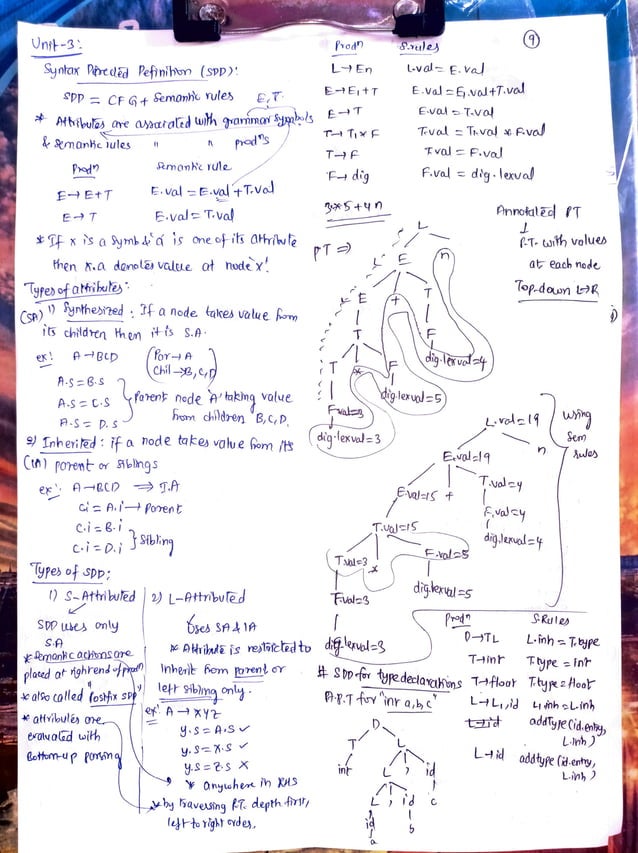 Unit-3:
Syntax Directed Definition (SDD):
SDD = CFG + Semantic rules E, T.
* Attributes are associated with grammar symbols
& semantic rules " " prodⁿs
Prodⁿ Semantic rule
E→E+T E.val = E.val + T.val
E→T E.val = T.val
* If x is a symb & 'a' is one of its attribute
then x.a denotes value at node 'x'.
Types of attributes:
(SA) 1) Synthesized : If a node takes value from
its children then it is S.A.
ex: A→BCD (Par→A
Chil→B,C,D)
A.S = B.S
A.S = C.S
A.S = D.S
} Parent node 'A' taking value
from children B,C,D.
2) Inherited : if a node takes value from its
(IA) parent or siblings
ex: A→BCD ⇒ I.A
C.i = A.i → Parent
C.i = B.i
C.i = D.i } Sibling
Types of SDD:
1) S-Attributed
SDD uses only
S.A
* Semantic actions are
placed at right end of prodⁿ
* also called "Postfix SDD"
* attributes are
evaluated with
Bottom-up parsing
2) L-Attributed
Uses SA & IA
* Attribute is restricted to
Inherit from parent or
left sibling only.
ex: A→XYZ
Y.S = A.S ✓
Y.S = X.S ✓
Y.S = Z.S ✗
* anywhere in RHS
* by traversing P.T. depth first,
left to right order.
9
Prodⁿ S.rules
L→En L.val = E.val
E→E₁+T E.val = E₁.val + T.val
E→T E.val = T.val
T→T₁×F T.val = T₁.val × F.val
T→F T.val = F.val
F→dig F.val = dig.lexval
3*5+4n
PT ⇒
L
E n
E + T
T F
dig.lexval=4
T * F
dig.lexval=5
F.val=3
dig.lexval=3
Annotated PT
↓
P.T. with values
at each node
Top-down L→R
L.val=19
E.val=19 n
E.val=15 + T.val=4
T.val=15 F.val=4
dig.lexval=4
T.val=3 * F.val=5
F.val=3 dig.lexval=5
dig.lexval=3
using
sem
rules
# SDD for type declarations
A.P.T for "int a,b,c"
D
T L
int L , id
L , id c
id b
a
Prodⁿ S.Rules
D→TL L.inh = T.type
T→int T.type = int
T→float T.type = float
L→L₁,id L₁.inh = L.inh
addType(id.entry,
L.inh)
L→id addtype(id.entry,
L.inh)